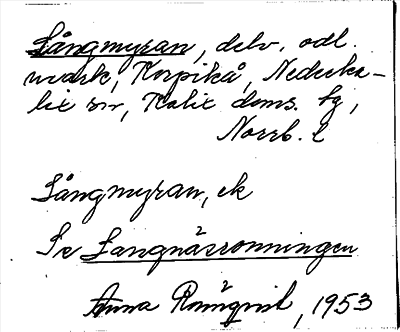 Långmyran, delv. odl.
mark, Korpikå, Nederka-
lix sn, Kalix doms. hg,
Norrb. l
Långmyran, ek
Se Långnäsrönningen
Anna Rönnqvist, 1953